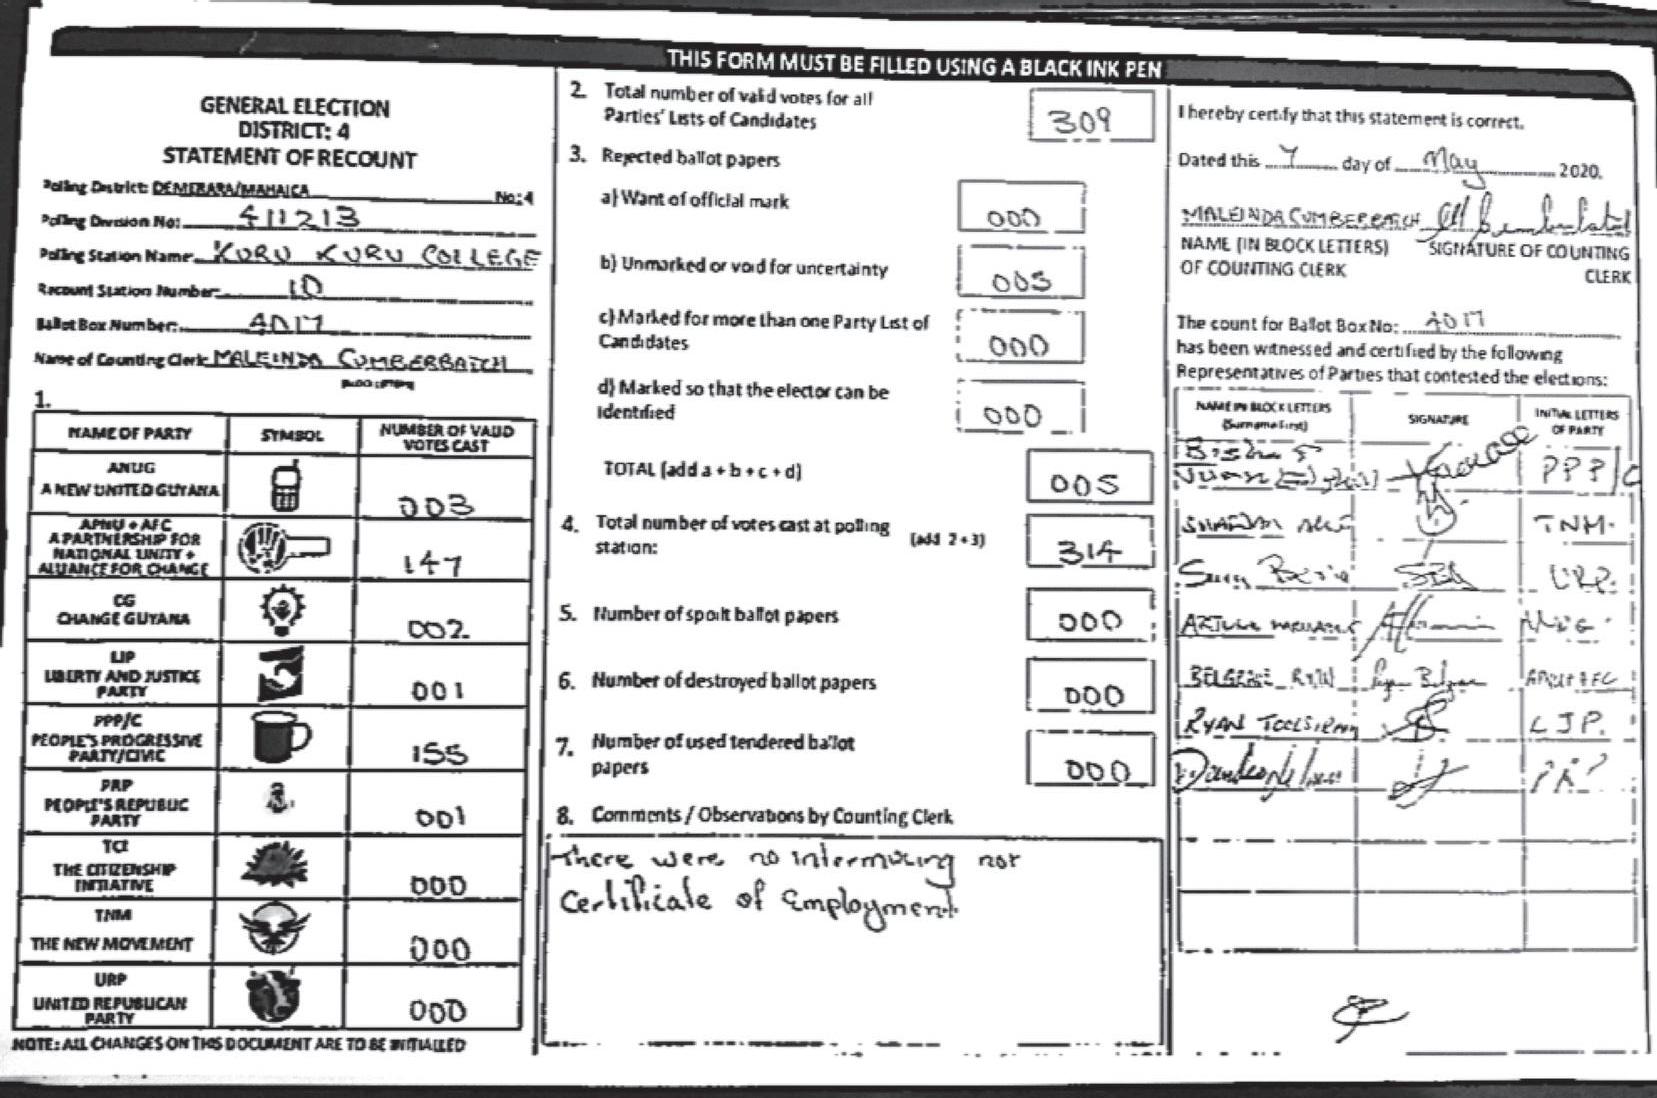 THIS FORM MUST BE FILLED USING A BLACK INK PEN
GENERAL ELECTION
DISTRICT: 4
STATEMENT OF RECOUNT
Polling District: DEMERARA/MAHAICA No: 4
Polling Division No: 411213
Polling Station Name: KURU KURU COLLEGE
Recount Station Number: 10
Ballot Box Number: 4017
Name of Counting Clerk: MALEINDA CUMBERBATCH
BLOCK LETTERS
1.
NAME OF PARTY SYMBOL NUMBER OF VALID
VOTES CAST
ANUG
A NEW UNITED GUYANA 003
APNU + AFC
A PARTNERSHIP FOR
NATIONAL UNITY +
ALLIANCE FOR CHANGE 147
CG
CHANGE GUYANA 002
LJP
LIBERTY AND JUSTICE
PARTY 001
PPP/C
PEOPLE'S PROGRESSIVE
PARTY/CIVIC 155
PRP
PEOPLE'S REPUBLIC
PARTY 001
TCI
THE CITIZENSHIP
INITIATIVE 000
TNM
THE NEW MOVEMENT 000
URP
UNITED REPUBLICAN
PARTY 000
NOTE: ALL CHANGES ON THIS DOCUMENT ARE TO BE INITIALLED
2. Total number of valid votes for all
Parties' Lists of Candidates 309
3. Rejected ballot papers
a) Want of official mark 000
b) Unmarked or void for uncertainty 005
c) Marked for more than one Party List of
Candidates 000
d) Marked so that the elector can be
identified 000
TOTAL (add a + b + c + d) 005
4. Total number of votes cast at polling
station: (add 2+3) 314
5. Number of spoilt ballot papers 000
6. Number of destroyed ballot papers 000
7. Number of used tendered ballot
papers 000
8. Comments / Observations by Counting Clerk
There were no intermixing nor
Certificate of Employment.
I hereby certify that this statement is correct.
Dated this 7 day of May 2020.
MALEINDA CUMBERBATCH
NAME (IN BLOCK LETTERS) SIGNATURE OF COUNTING
OF COUNTING CLERK CLERK
The count for Ballot Box No: 4017
has been witnessed and certified by the following
Representatives of Parties that contested the elections:
NAME IN BLOCK LETTERS SIGNATURE INITIAL LETTERS
(Surname First) OF PARTY
PPP/C
TNM.
URP.
BELGRAVE RYAN
RYAN TOOLSIRAM LJP.
PRP